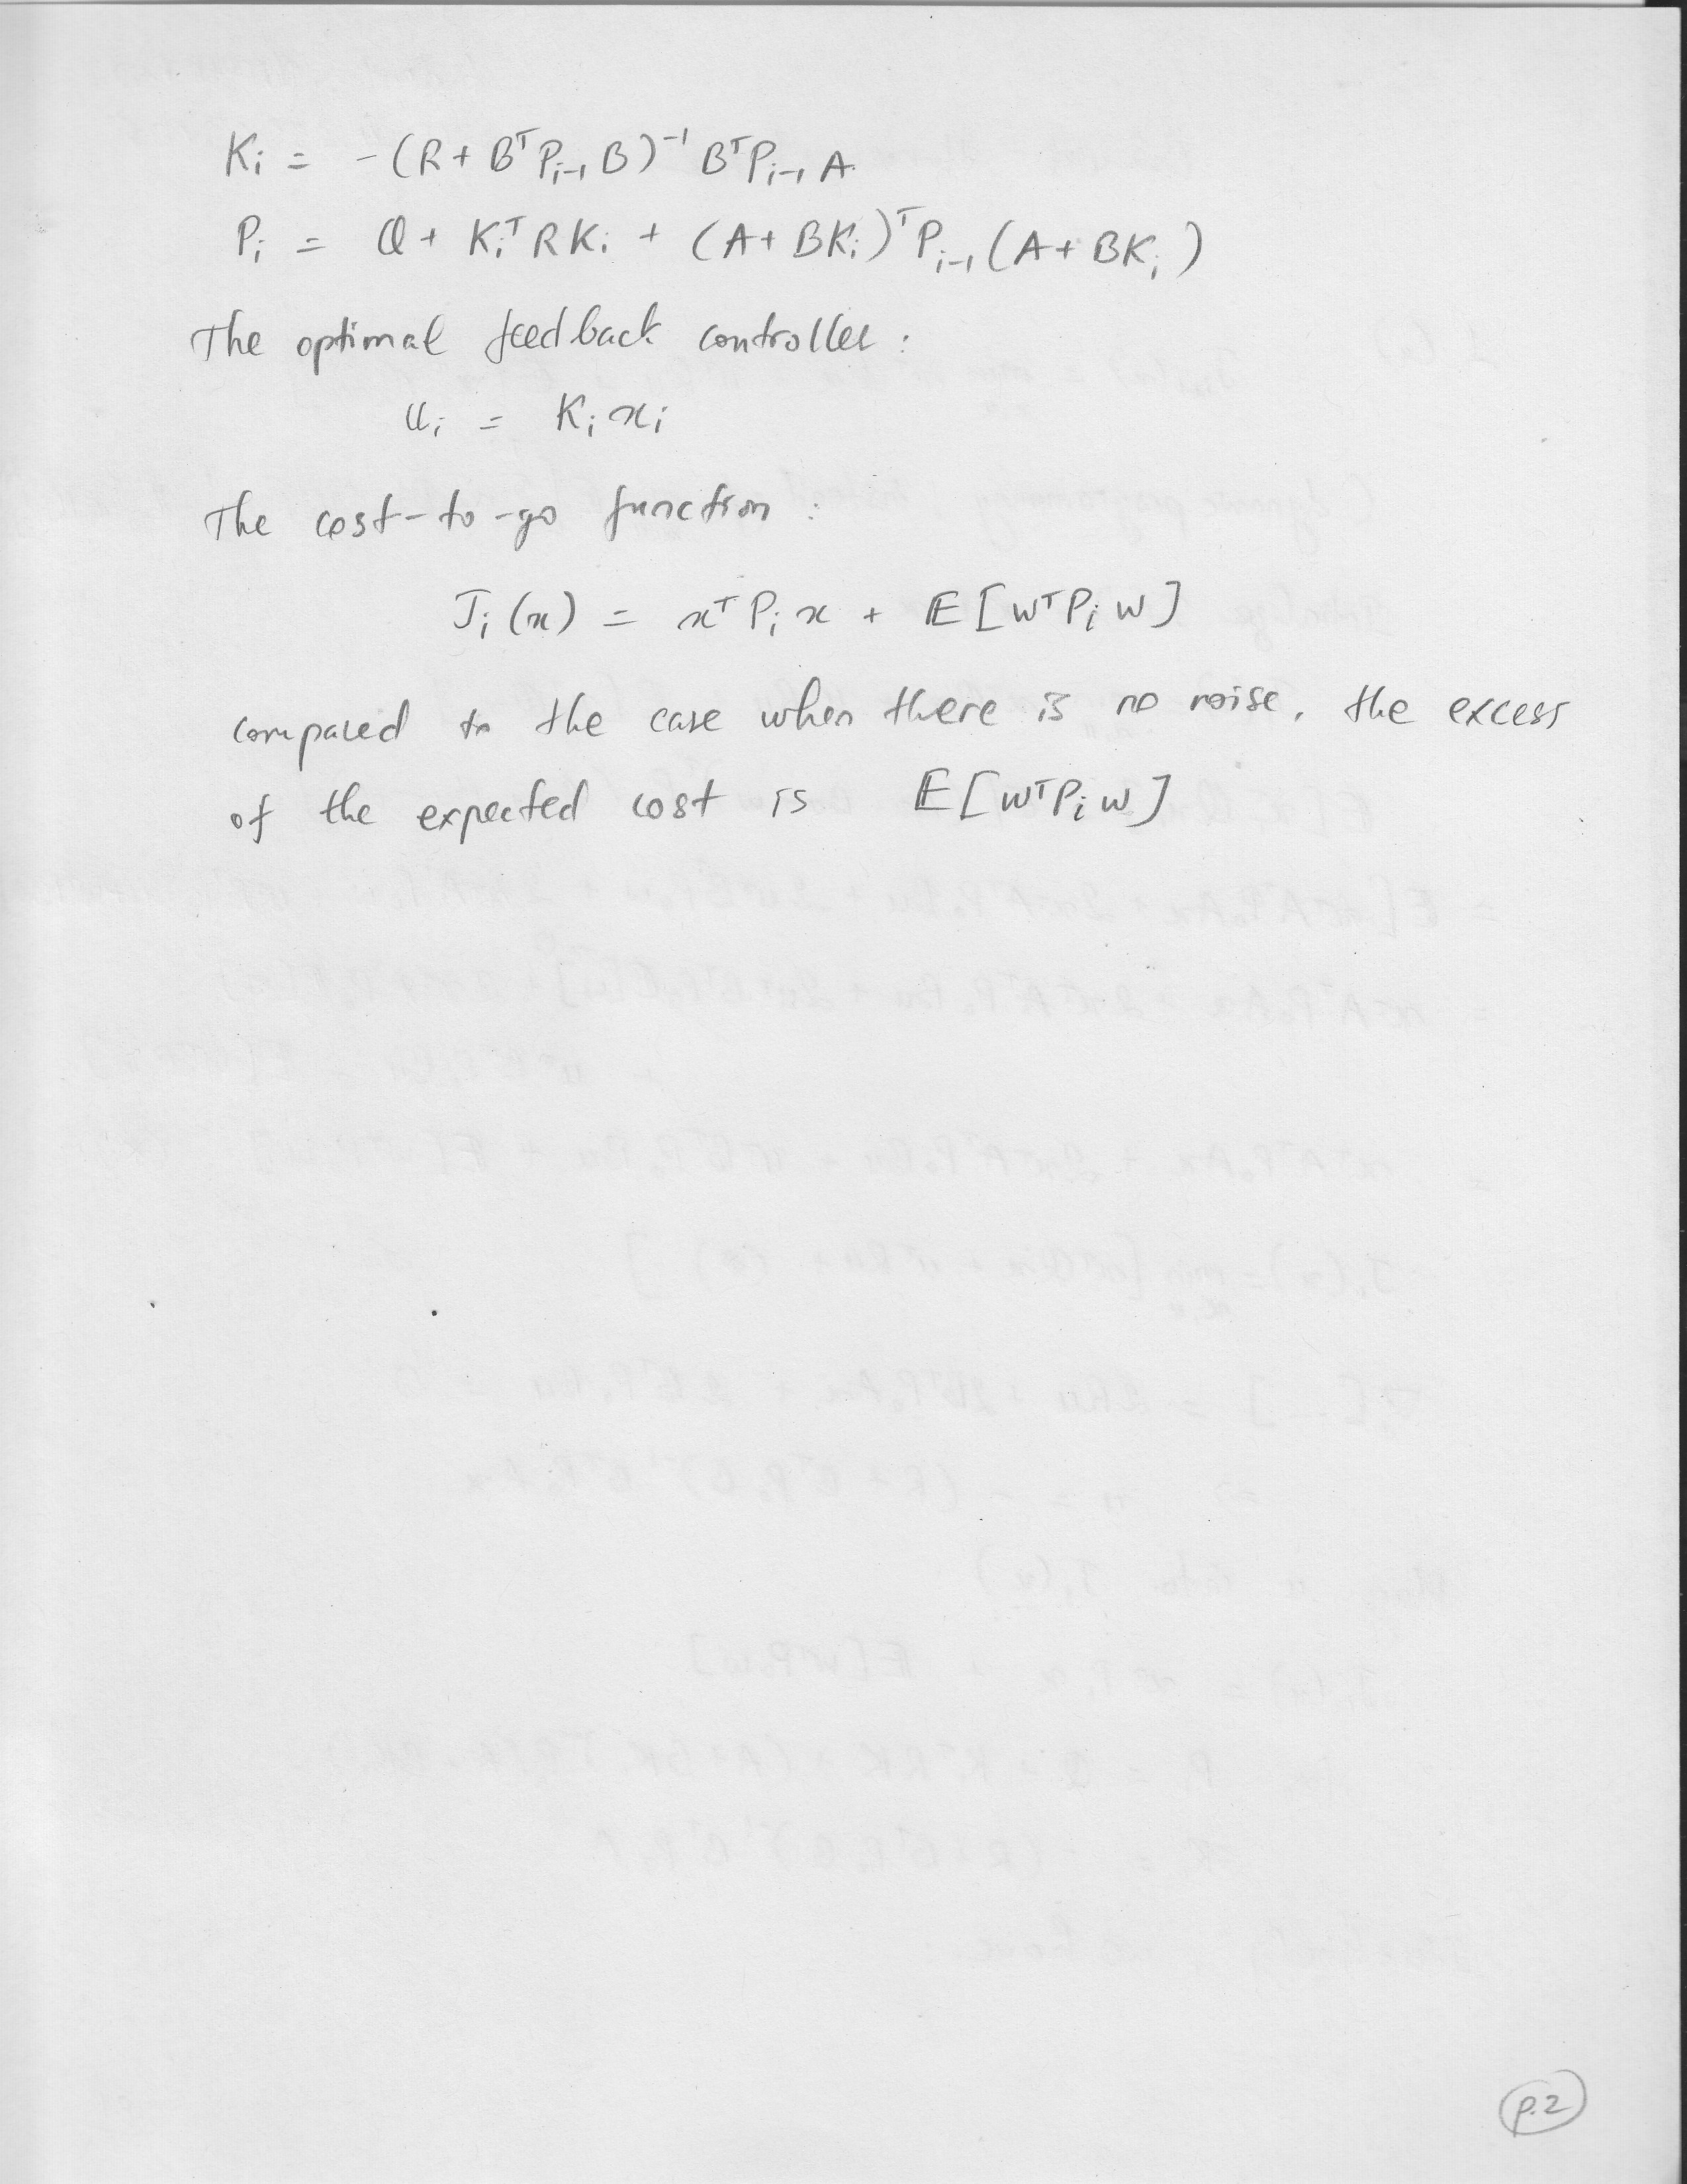 Kᵢ = -(R + BᵀPᵢ₋₁B)⁻¹ BᵀPᵢ₋₁A
Pᵢ = Q + KᵢᵀRKᵢ + (A + BKᵢ)ᵀPᵢ₋₁(A + BKᵢ)
The optimal feedback controller :
uᵢ = Kᵢxᵢ
The cost-to-go function :
Jᵢ(x) = xᵀPᵢx + E[wᵀPᵢw]
compared to the case when there is no noise, the excess
of the expected cost is E[wᵀPᵢw]
p.2